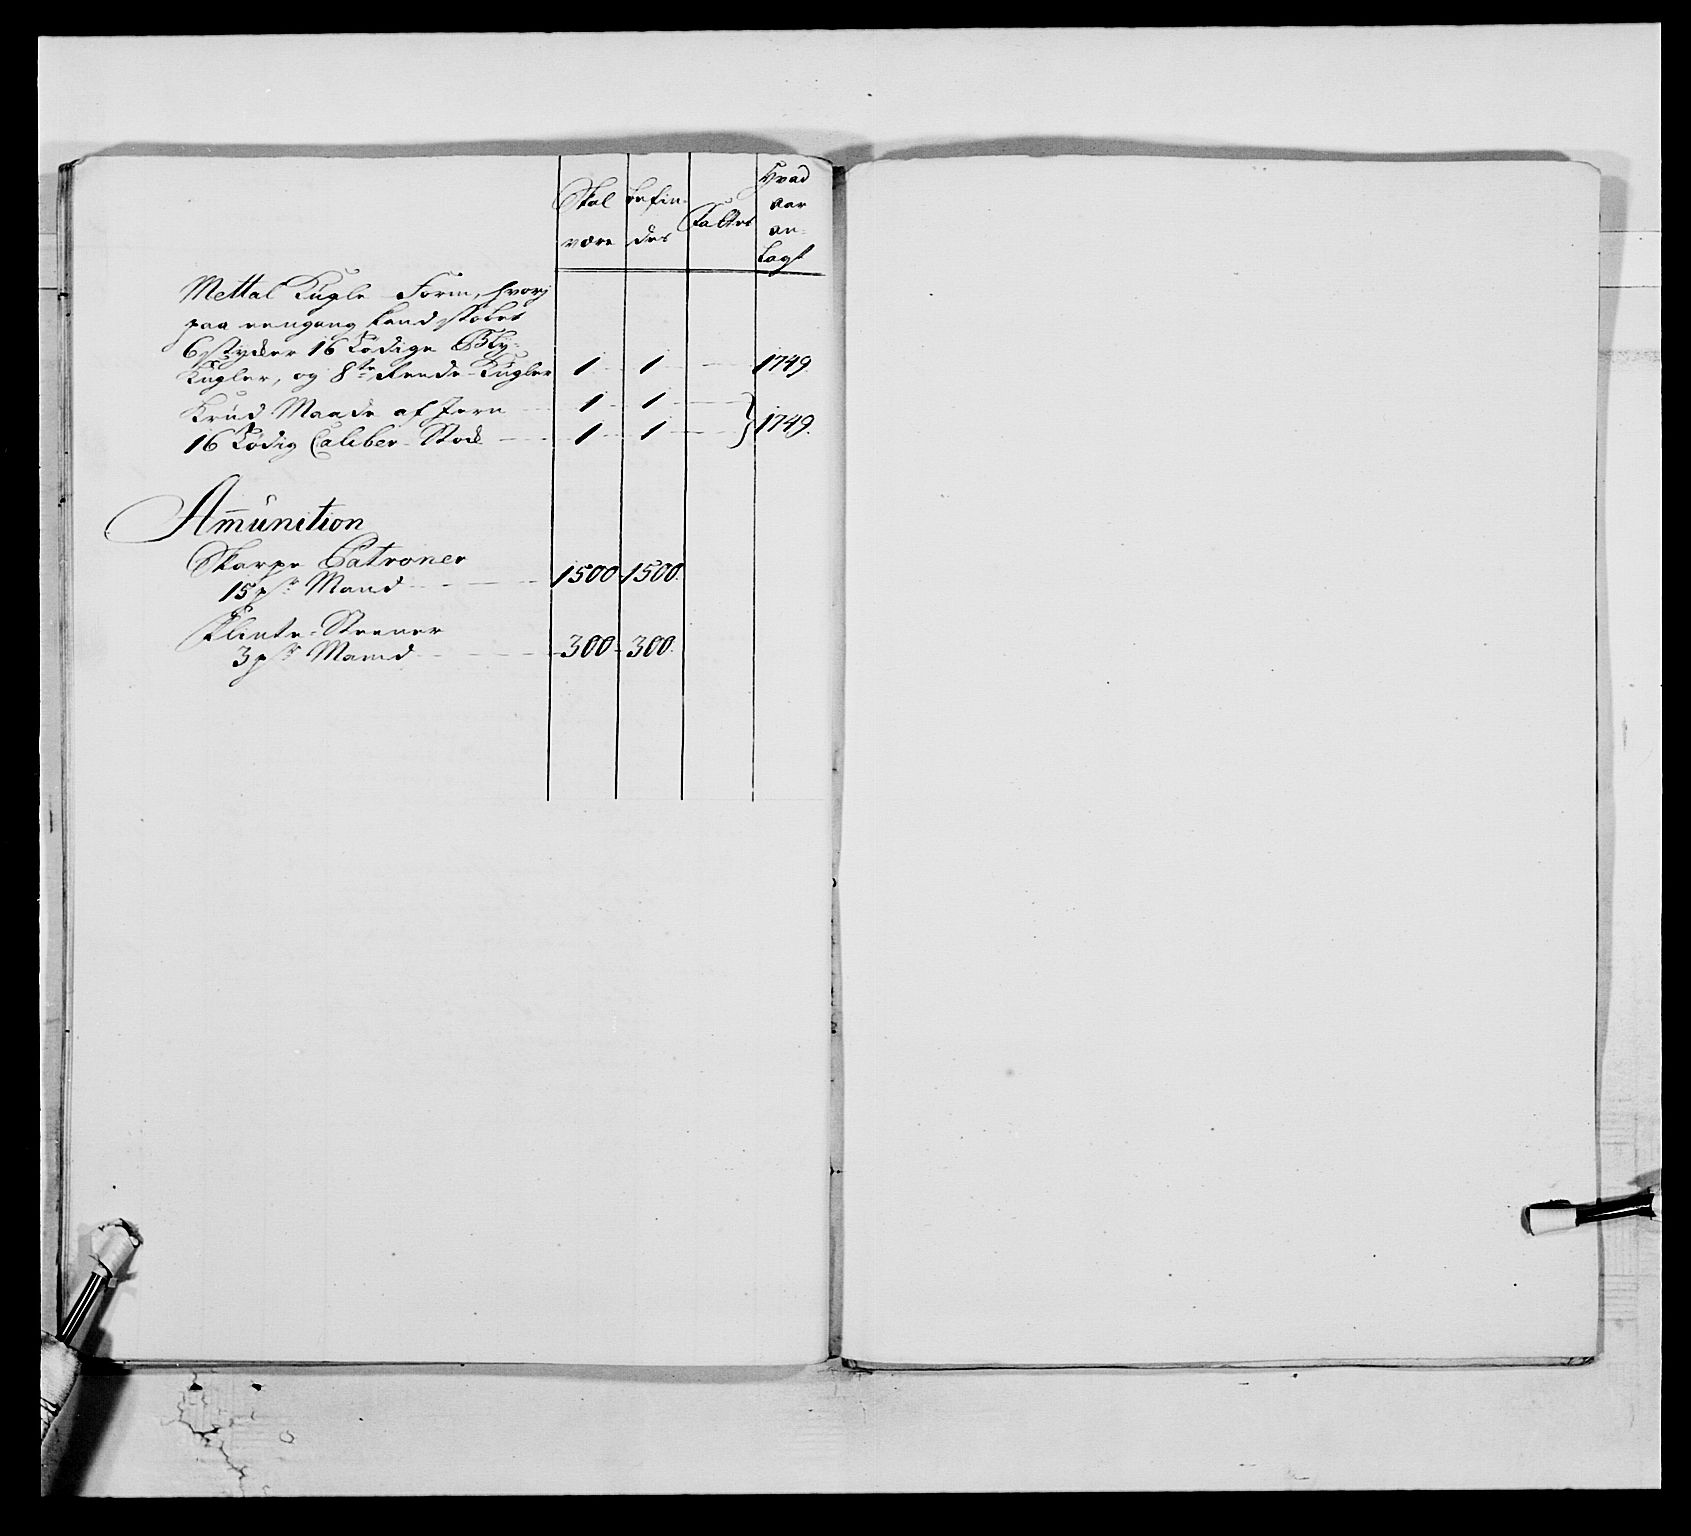 Skal være | befin-des | Fattes | Hvad Aar an-lagt
Mettal Kugle-Form, hvorj
paa eengang kand støbes
6 stykker 16 Lødige Bly-
Kugler, og 8te Rende-Kugler | 1 | 1 | — | 1749.
Krud Maade af Jern | 1 | 1 | — | } 1749.
16 Lødig Caliber-Stok | 1 | 1 | —
Am̄unition
Skarpe Patroner
15 pr Mand | 1500 | 1500.
Flinte-Steener
3 pr Mand | 300 | 300.